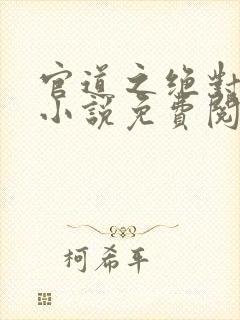 官道之绝对
小說免費閱
柯希平